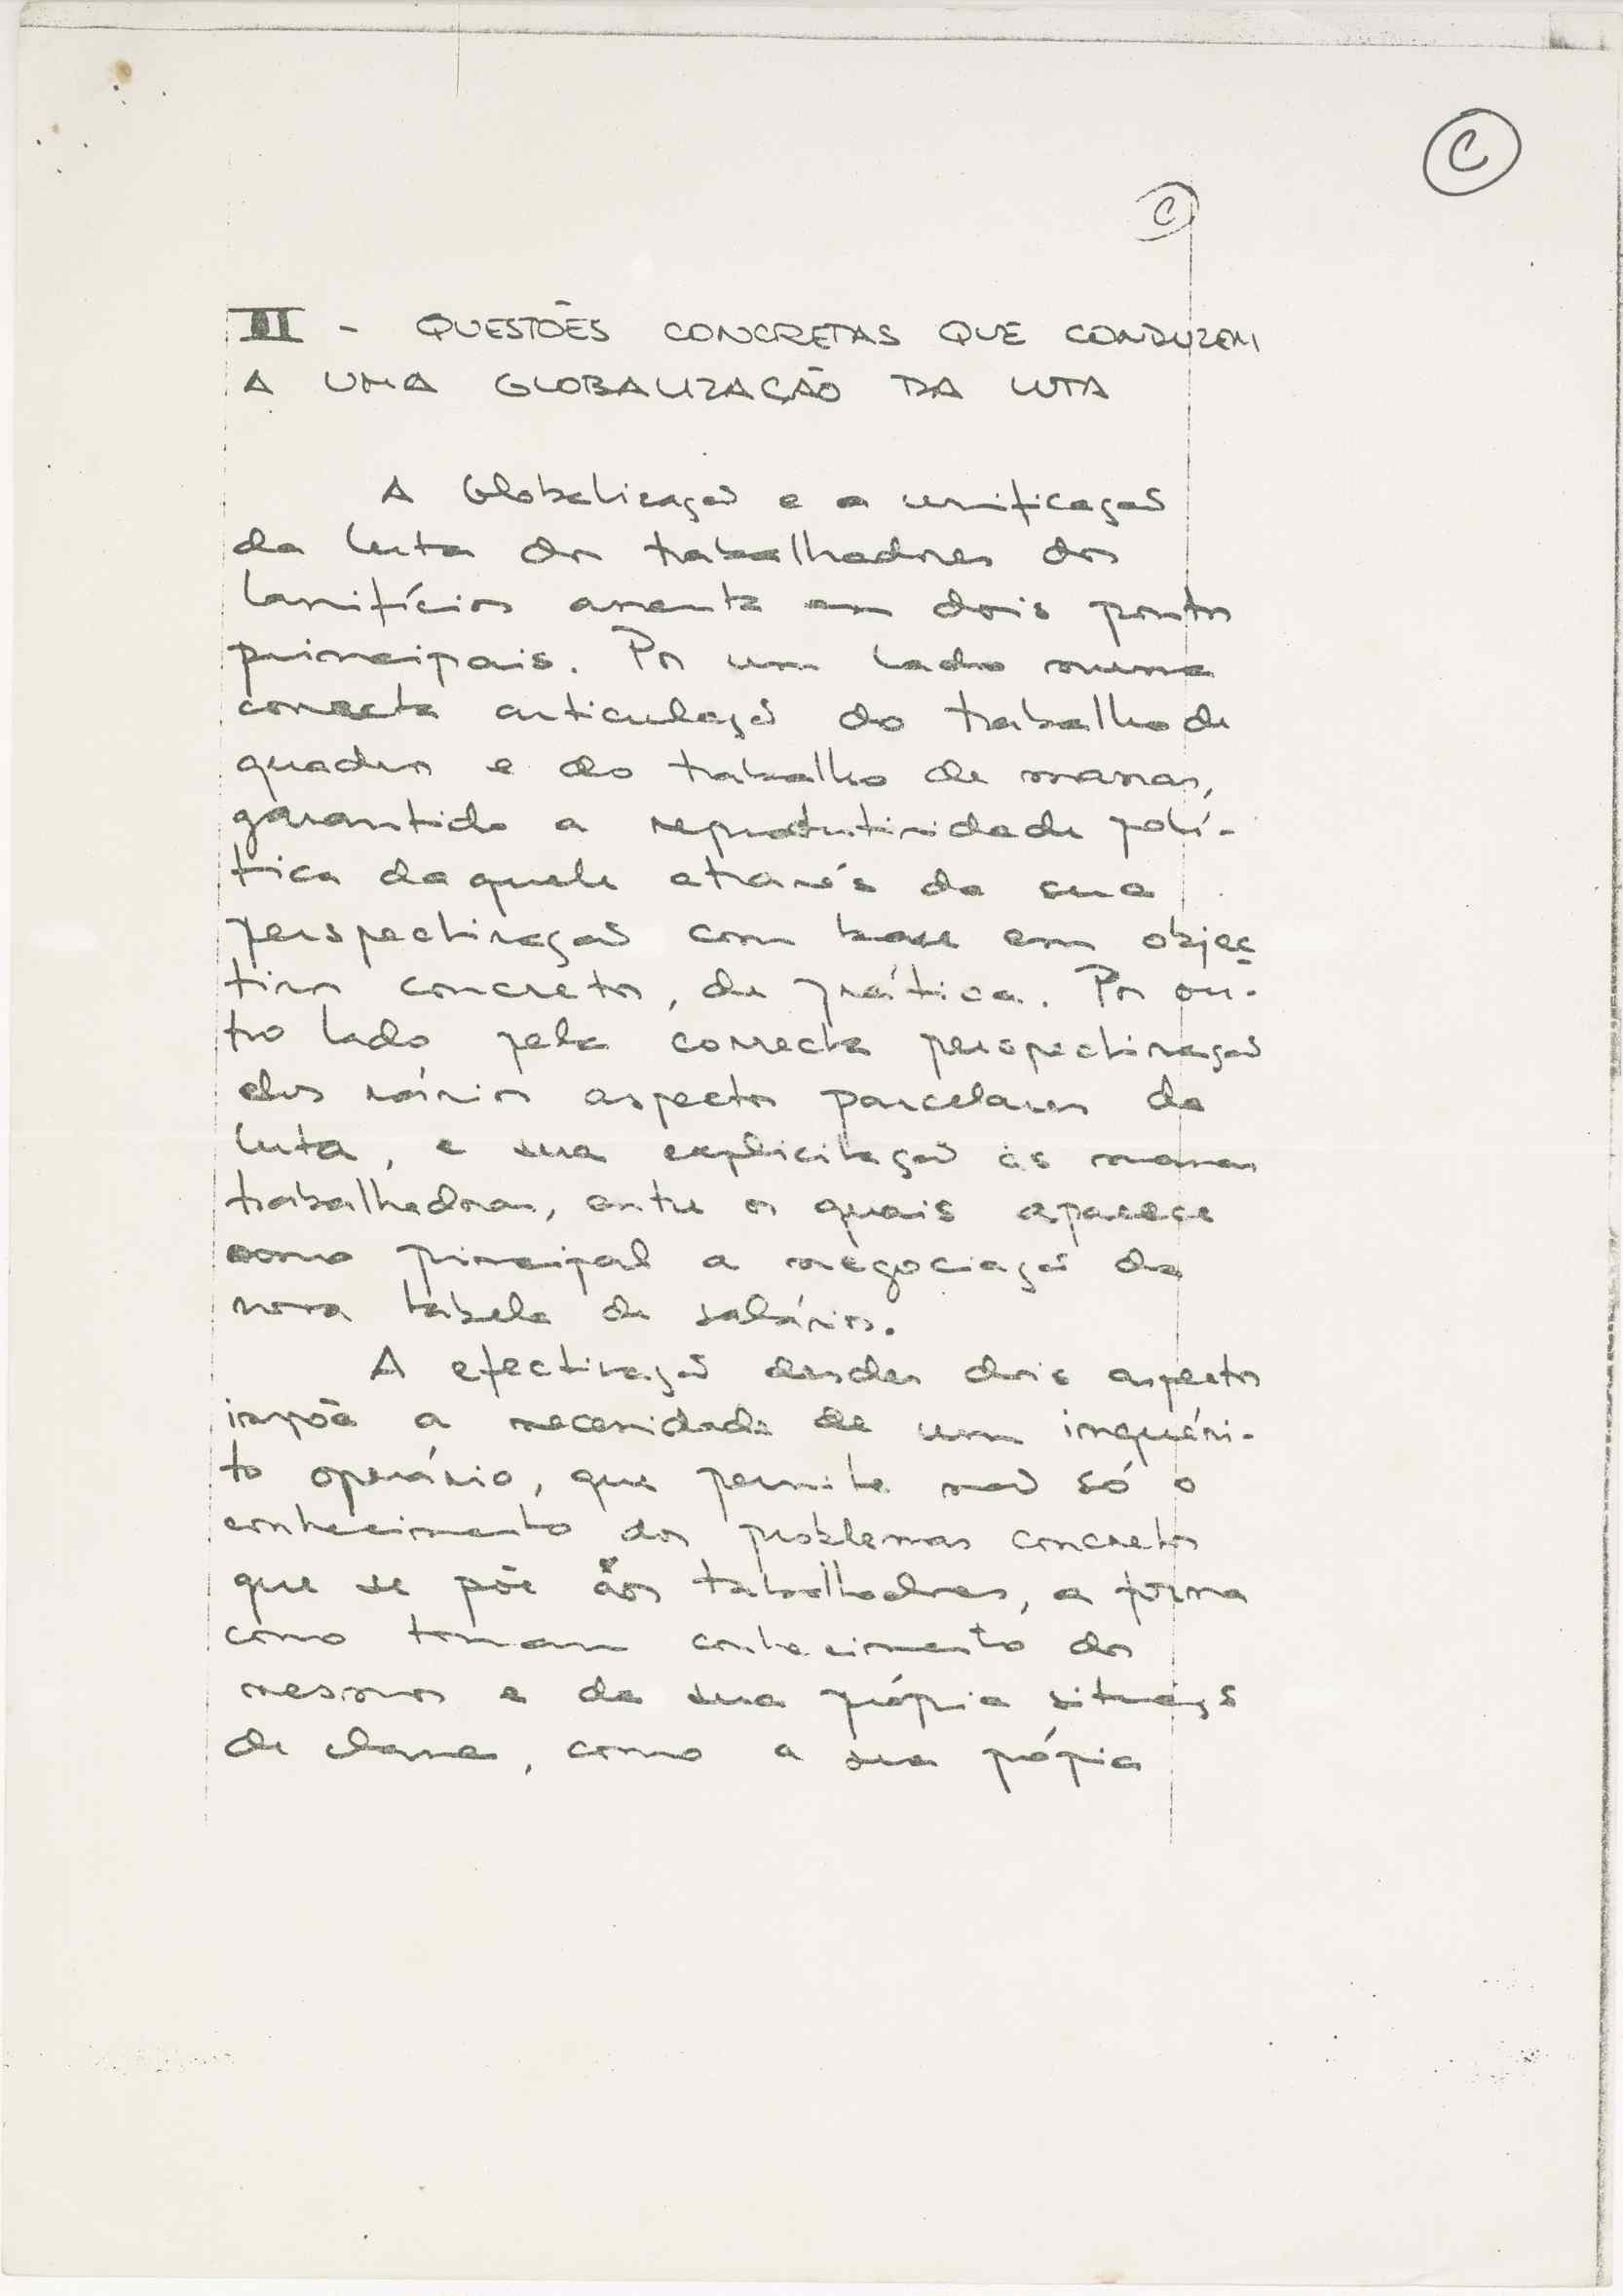 C
C
III - QUESTÕES CONCRETAS QUE CONDUZEM
A UMA GLOBALIZAÇÃO DA LUTA
A Globalização e a unificação
da luta dos trabalhadores dos
lanifícios assenta em dois pontos
principais. Por um lado numa
correcta articulação do trabalho de
quadros e do trabalho de massas,
garantido a reprodutividade polí-
tica daquele através da sua
perspectivação com base em objec
tivos concretos, de prática. Por ou-
tro lado pela correcta perspectivação
dos vários aspectos parcelares da
luta, e sua explicitação às massas
trabalhadoras, entre os quais aparece
como principal a negociação da
nova tabela de salários.
A efectivação destes dois aspectos
impõe a necessidade de um inquéri-
to operário, que permite não só o
conhecimento dos problemas concretos
que se põe aos trabalhadores, a forma
como tomam conhecimento dos
mesmos e da sua própria situação
de classe, como a sua própria